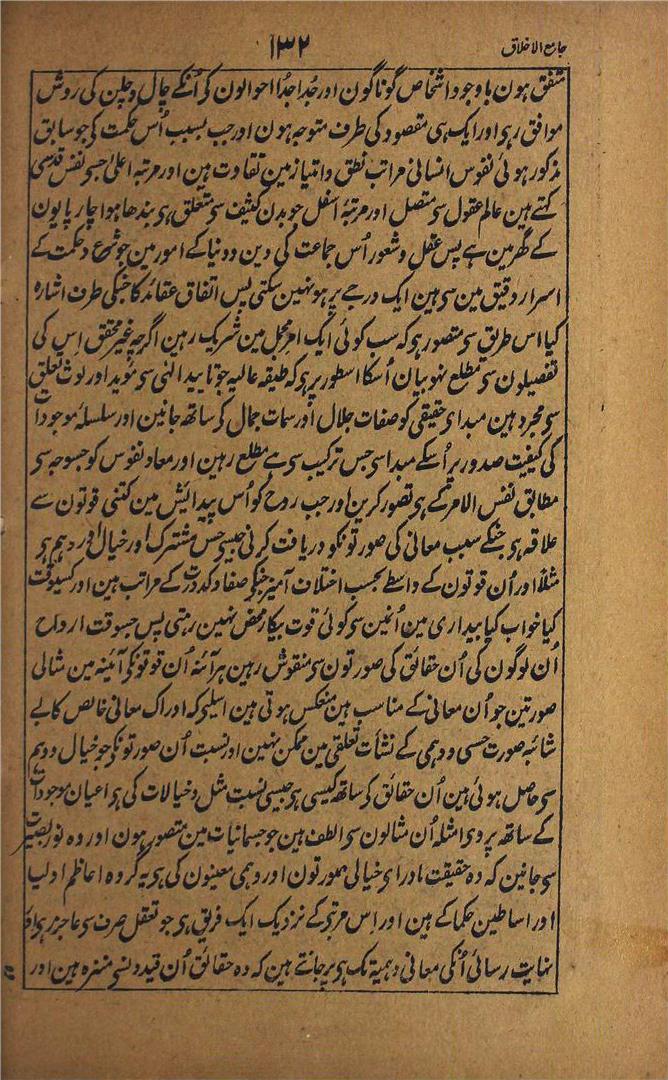 جامع الاخلاق
۱۳۲
متفق ہون باوجود اشخاص گوناگون اور جُدا جدُا احوالون کے اُنکے چال و چلن کی روش
موافق رہی اور ایک ہی مقصود کی طرف متوجہ ہون اور جب بسبب اُس حکمت کی جو سابق
مذکور ہوئی نفوس انسانی مراتب نطق و امتیاز مین تفاوت ہین اور مرتبہ اعلیٰ جسی نفس قدسی
کہتے ہین عالم عقول سی متصل اور مرتبۂ اسفل جو بدن کثیف سی متعلق ہی بندھا ہوا چارپایون
کے گھر مین ہے پس عقل و شعور اُس جماعت کی دین و دنیا کے امور مین جو شرع و حکمت کے
اسرار دقیق مین سی ہین ایک درجے پر ہو نہین سکتی پس اتفاق عقائد کا جنکی طرف اشارہ
کیا اس طریق سی متصور ہی کہ سب کوئی ایک امر مجمل مین شریک رہین اگرچہ غیر محقق اِس کی
تفصیلون سی مطلع نہو بیان اُسکا اسطور پر ہی کہ طبقہ عالیہ جو تایید الٰہی سی مؤید اور لوث تعلق
سی مجرد ہین مبداء حقیقی کو صفات جلال اور سمات جمال کی ساتھ جانین اور سلسلۂ موجودات
کی کیفیت صدور پر اُسکے مبدا سی جس ترکیب سی ہے مطلع رہین اور معاد نفوس کو جسوجہ سی
مطابق نفس الامر کے ہی تصور کرین اور جب روح کو اُس پیدائش مین کتنی قوتون سے
علاقہ ہی جنکے سبب معانی کی صورتونکو دریافت کرتی جیسی حس مشترک اور خیال اور وہم ہی
مثلًا اور اُن قوتون کے واسطے بحسب اختلاف آمیز جنکو صفا و کدرت کے مراتب ہین اور کسیوقت
کیا خواب کیا بیداری مین اُنمین سی کوئی قوت بیکار محض نہین رہتی پس جسوقت ارواح
اُن لوگون کی اُن حقائق کی صورتون سی منقوش رہین ہر آئنہ اُن قوتونکی آئینہ مین مثالی
صورتین جو اُن معانی کے مناسب ہین منعکس ہوتی ہین اسلیے کہ ادراک معانی خالص کا بے
شائبہ صورت حسی و وہمی کے نشأت تعلقی مین ممکن نہین اور نسبت اُن صورتونکی جو خیال و وہم
سی حاصل ہوئی ہین اُن حقائق کی ساتھ کیسی ہی جیسی نسبت مثل و خیالات کی ہی اعیان موجودات
کے ساتھ پر وی امثلہ اُن مثالون سی الطف ہین جو جسمانیات مین متصور ہون اور وہ نور بصیرت
سی جانین کہ وہ حقیقت اوراے خیالی صورتون اور وہمی معینون کی ہی یہ گروہ اعاظم اولیا
اور اساطین حکما کے ہین اور اِس مرتبی کے نزدیک ایک فریق ہی جو تعقل صرف سی عاجز ہی اور
نہایت رسائی اُنکی معانی وہمیہ تک ہی پر جانتے ہین کہ وہ حقائق اُن قیدونسی منزہ ہین اور